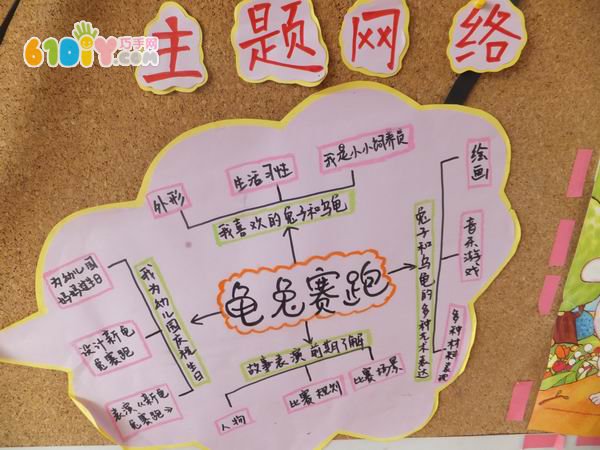 主题网络
61DIY巧手网
.com
外形
生活习性
我是小小饲养员
我喜欢的兔子和乌龟
绘画
音乐游戏
多种材料表现
兔子和乌龟的多种艺术表达
龟兔赛跑
我为幼儿园庆祝生日
为幼儿园
妈妈过生日
设计新龟
兔赛跑
表演《新龟
兔赛跑》
故事表演前期了解
人物
比赛规则
比赛场景